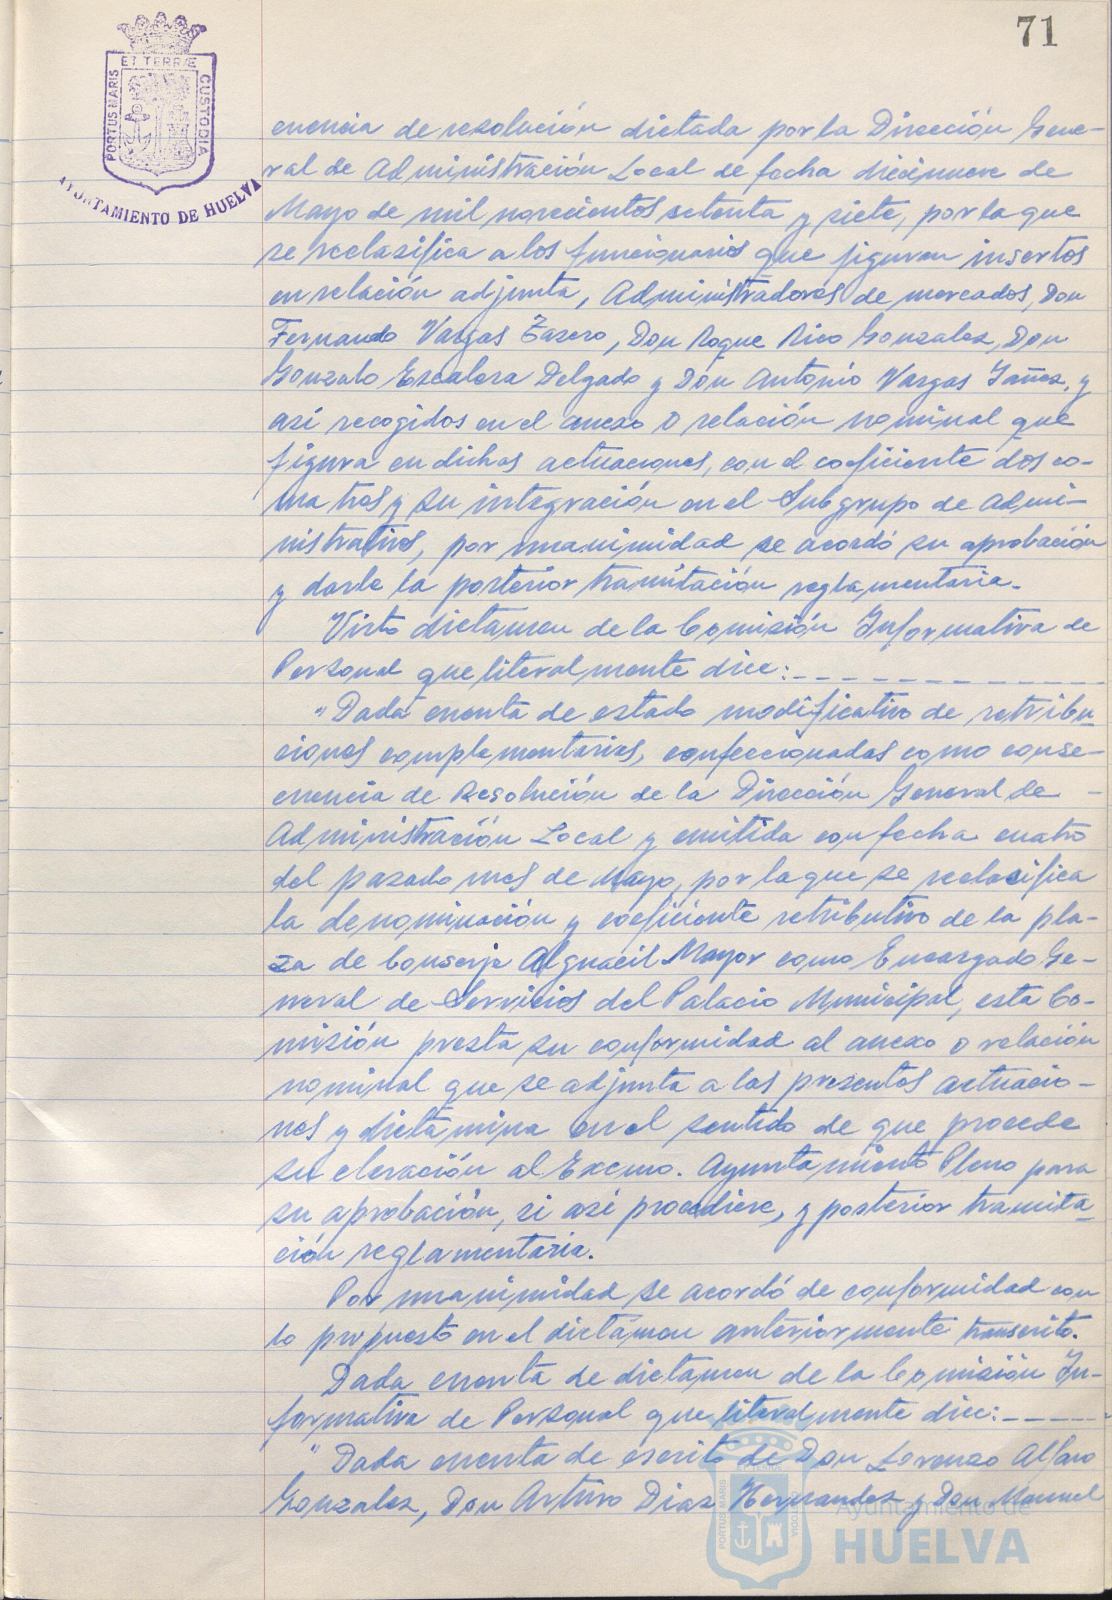 71
ET TERRÆ
PORTUS MARIS
CUSTODIA
AYUNTAMIENTO DE HUELVA
cuencia de resolución dictada por la Dirección Gene-
ral de Administración Local de fecha diecinueve de
Mayo de mil novecientos setenta y siete, por la que
se reclasifica a los funcionarios que figuran insertos
en relación adjunta, Administradores de mercados, Don
Fernando Vargas Zazero, Don Roque Rico Gonzalez, Don
Gonzalo Escalera Delgado y Don Antonio Vargas Yañez, y
así recogidos en el anexo o relación nominal que
figura en dichas actuaciones, con el coeficiente dos co-
ma tres y su integración en el Subgrupo de Admi-
nistrativos, por unanimidad se acordó su aprobación
y darle la posterior tramitación reglamentaria.
Visto dictamen de la Comisión Informativa de
Personal que literalmente dice:
"Dada cuenta de estado modificativo de retribu-
ciones complementarias, confeccionadas como conse-
cuencia de Resolución de la Dirección General de -
Administración Local y emitida con fecha cuatro
del pasado mes de Mayo, por la que se reclasifica
la denominación y coeficiente retributivo de la pla-
za de Conserje Alguacil Mayor como Encargado Ge-
neral de Servicios del Palacio Municipal, esta Co-
misión presta su conformidad al anexo o relación
nominal que se adjunta a las presentes actuacio-
nes y dictamina en el sentido de que procede
su elevación al Excmo. Ayuntamiento Pleno para
su aprobación, si así procediere, y posterior tramita-
ción reglamentaria.
Por unanimidad se acordó de conformidad con
lo propuesto en el dictámen anteriormente transcrito.
Dada cuenta de dictamen de la Comisión In-
formativa de Personal que literalmente dice:
"Dada cuenta de escrito de Don Lorenzo Alfaro
Gonzalez, Don Arturo Diaz Hernandez y Don Manuel
PORTUS MARIS
CUSTODIA
Ayuntamiento de
HUELVA